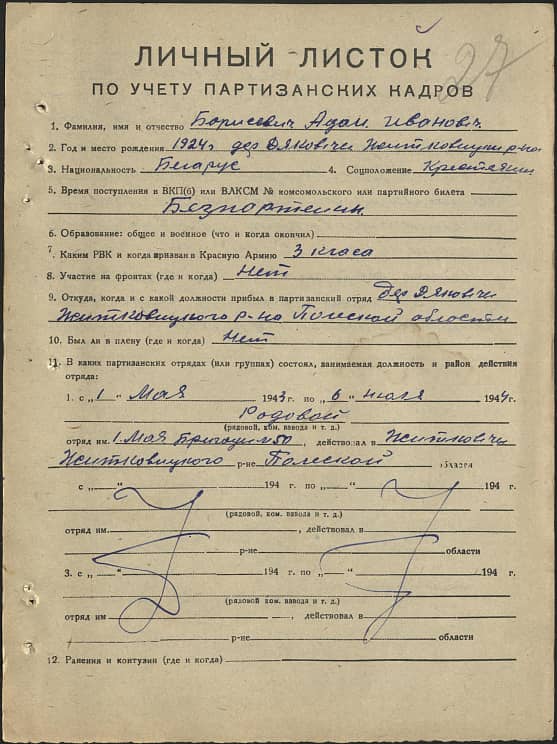 27
ЛИЧНЫЙ ЛИСТОК
ПО УЧЕТУ ПАРТИЗАНСКИХ КАДРОВ
1. Фамилия, имя и отчество Борисевич Адам Иванович
2. Год и место рождения 1924г дер Дяковичи Житковицкий р-на
3. Национальность Беларус 4. Соцположение Крестянин
5. Время поступления в ВКП(б) или ВЛКСМ № комсомольского или партийного билета
Безпартейни
6. Образование: общее и военное (что и когда окончил)
7. Каким РВК и когда призван в Красную Армию 3 класа
8. Участие на фронтах (где и когда) Нет
9. Откуда, когда и с какой должности прибыл в партизанский отряд Дер Дяковичи
Житковицкого р-на Полеской области
10. Был ли в плену (где и когда) Нет
11. В каких партизанских отрядах (или группах) состоял, занимаемая должность и район действия
отряда:
1. с „1“ Мая 1943 г. по „6“ июля 1944 г.
Родовой
(рядовой, ком. взвода и т. д.)
отряд им. 1 Мая Бригады №50, действовал в Житковичи
Житковицкого р-не Полеской области
с „ “ 194 г. по „ “ 194 г.
(рядовой, ком. взвода и т. д.)
отряд им. , действовал в
р-не области
3. с „ “ 194 г. по „ “ 194 г.
(рядовой, ком. взвода и т. д.)
отряд им , действовал в
р-не области
12. Ранения и контузии (где и когда)